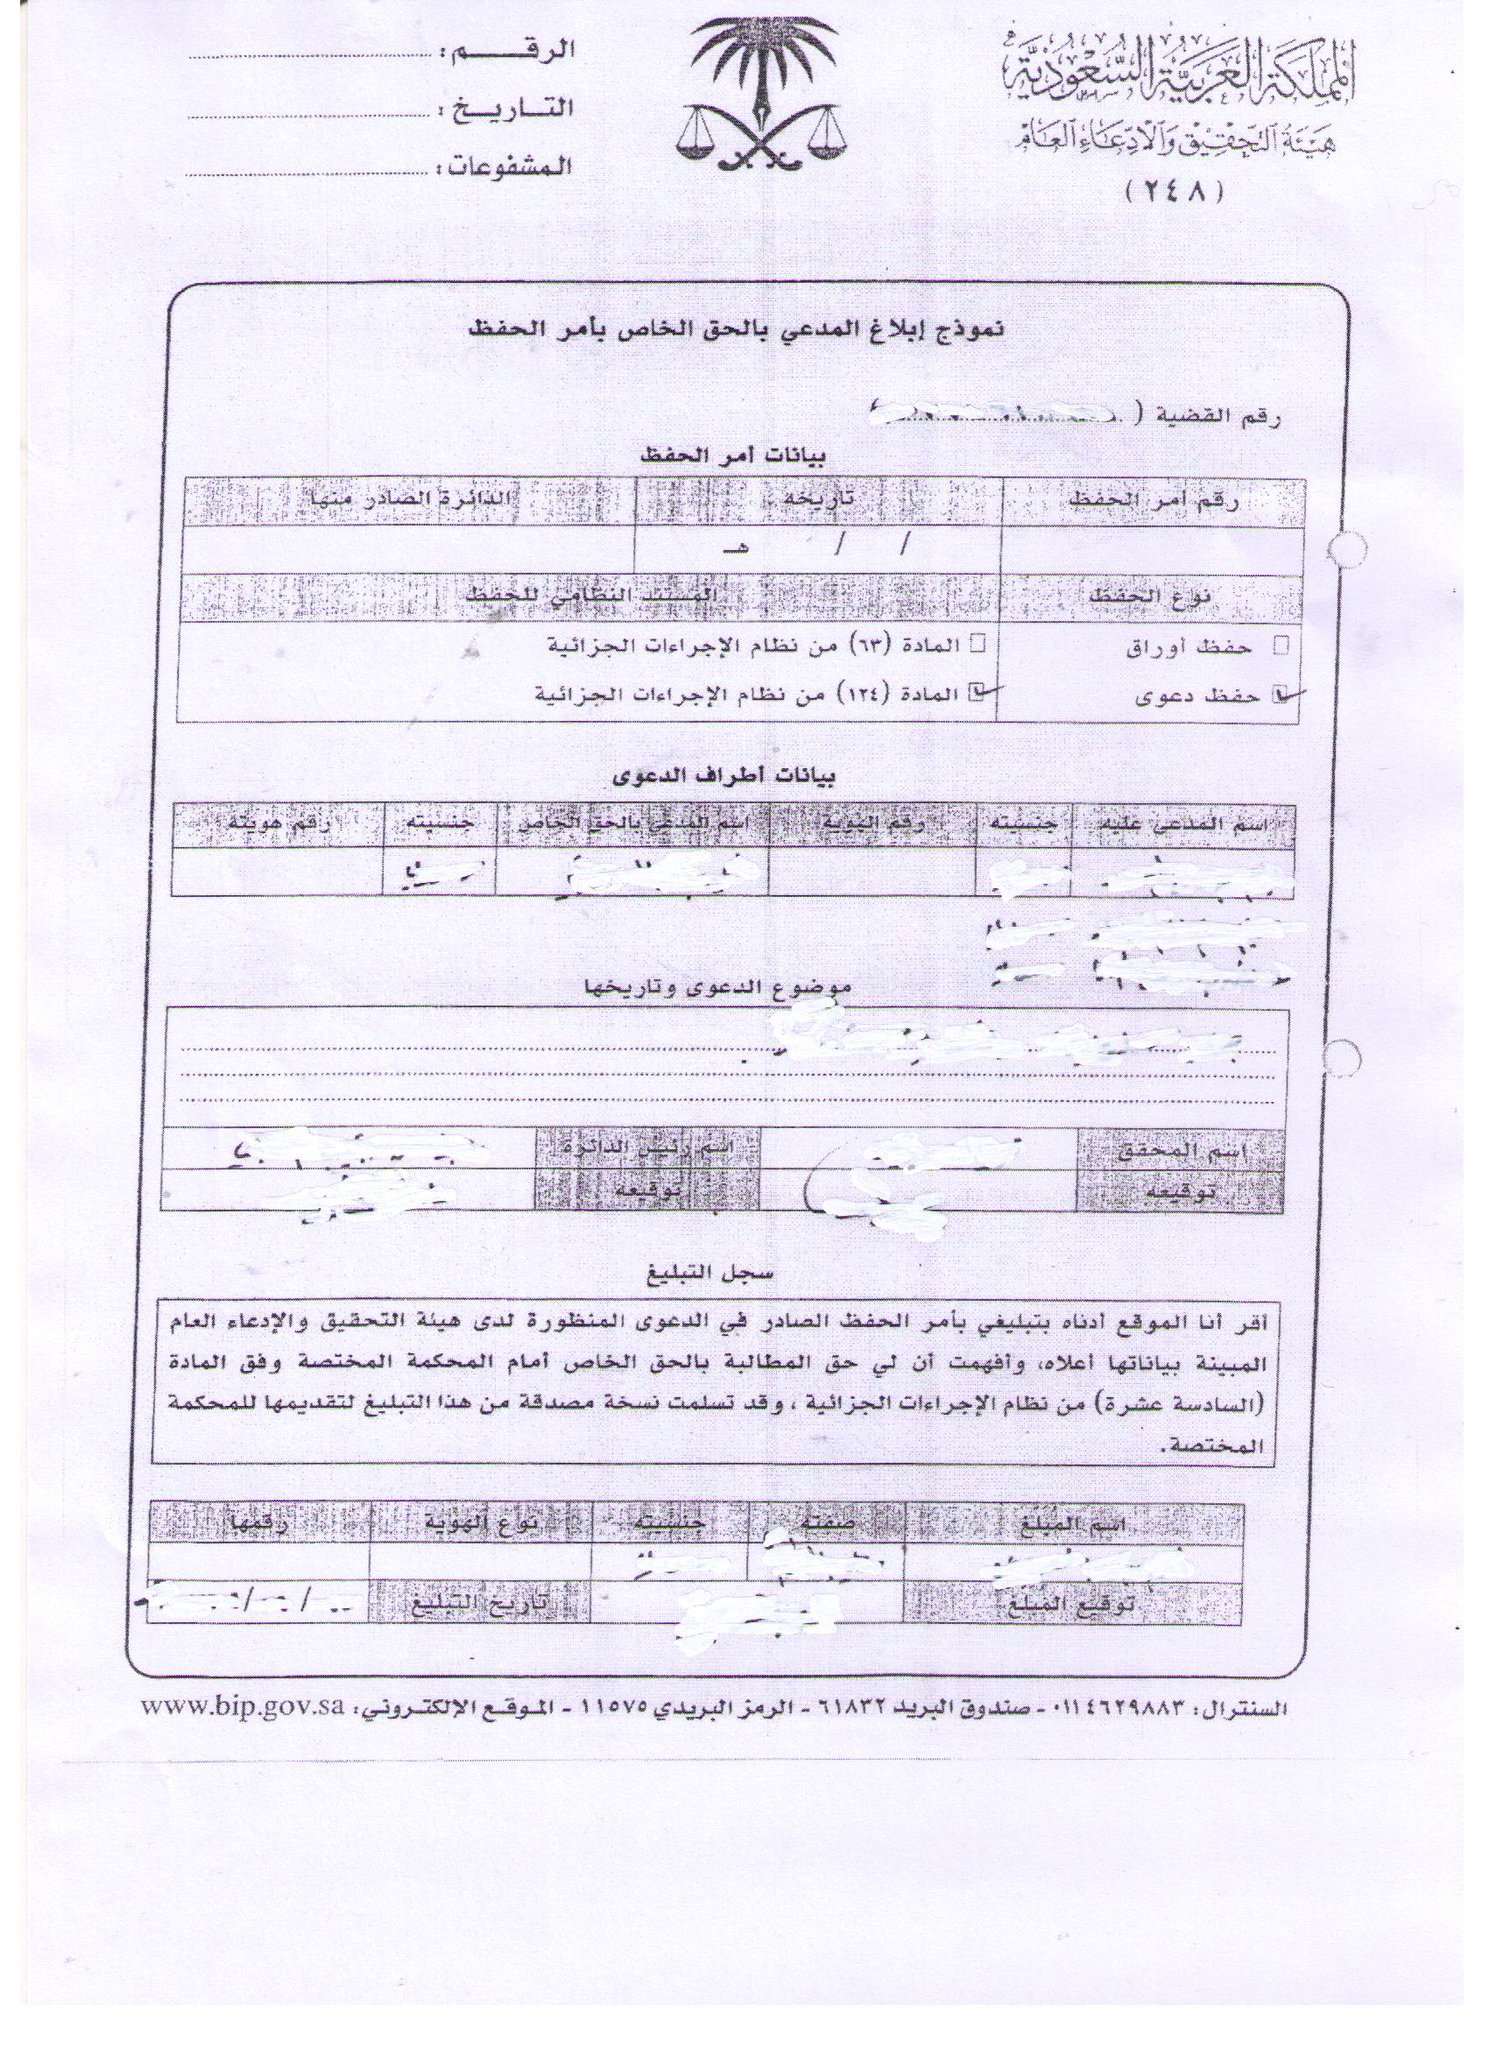 المملكة العربية السعودية
هيئة التحقيق والادعاء العام
(٢٤٨)
الرقم:
التاريخ:
المشفوعات:
نموذج إبلاغ المدعي بالحق الخاص بأمر الحفظ
رقم القضية ( )
بيانات أمر الحفظ
رقم أمر الحفظ تاريخه الدائرة الصادر منها
/ / هـ
نوع الحفظ المستند النظامي للحفظ
حفظ أوراق المادة (٦٣) من نظام الإجراءات الجزائية
حفظ دعوى المادة (١٢٤) من نظام الإجراءات الجزائية
بيانات أطراف الدعوى
اسم المدعى عليه جنسيته رقم الهوية اسم المدعي بالحق الخاص جنسيته رقم هويته
موضوع الدعوى وتاريخها
اسم المحقق اسم رئيس الدائرة
توقيعه توقيعه
سجل التبليغ
أقر أنا الموقع أدناه بتبليغي بأمر الحفظ الصادر في الدعوى المنظورة لدى هيئة التحقيق والإدعاء العام
المبينة بياناتها أعلاه، وأفهمت أن لي حق المطالبة بالحق الخاص أمام المحكمة المختصة وفق المادة
(السادسة عشرة) من نظام الإجراءات الجزائية ، وقد تسلمت نسخة مصدقة من هذا التبليغ لتقديمها للمحكمة
المختصة.
اسم المبلغ صفته جنسيته نوع الهوية رقمها
توقيع المبلغ تاريخ التبليغ / /
السنترال: ٠١١٤٦٢٩٨٨٣ - صندوق البريد ٦١٨٣٢ - الرمز البريدي ١١٥٧٥ - الموقع الإلكتروني: www.bip.gov.sa